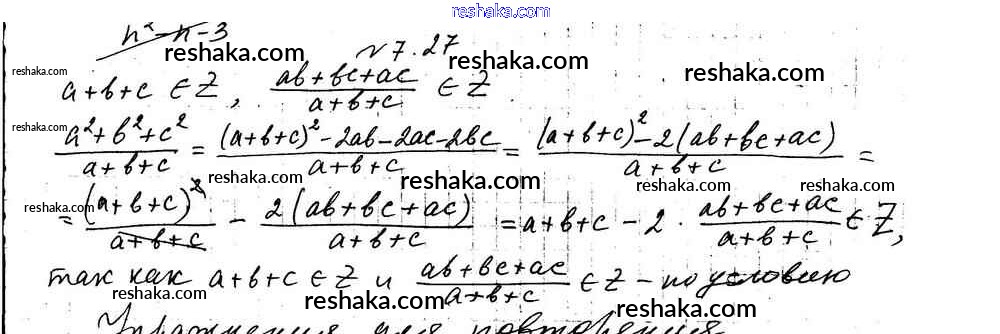 reshaka.com
n² - n - 3
№ 7.27
reshaka.com reshaka.com reshaka.com reshaka.com
a+b+c ∈ Z, (ab+bc+ac)/(a+b+c) ∈ Z
reshaka.com
(a²+b²+c²)/(a+b+c) = ((a+b+c)²-2ab-2ac-2bc)/(a+b+c) = ((a+b+c)²-2(ab+bc+ac))/(a+b+c) =
reshaka.com reshaka.com reshaka.com reshaka.com
= (a+b+c)²/(a+b+c) - 2(ab+bc+ac)/(a+b+c) = a+b+c - 2 · (ab+bc+ac)/(a+b+c) ∈ Z,
так как a+b+c ∈ Z и (ab+bc+ac)/(a+b+c) ∈ Z - по условию
reshaka.com reshaka.com reshaka.com
Упражнения для повторения